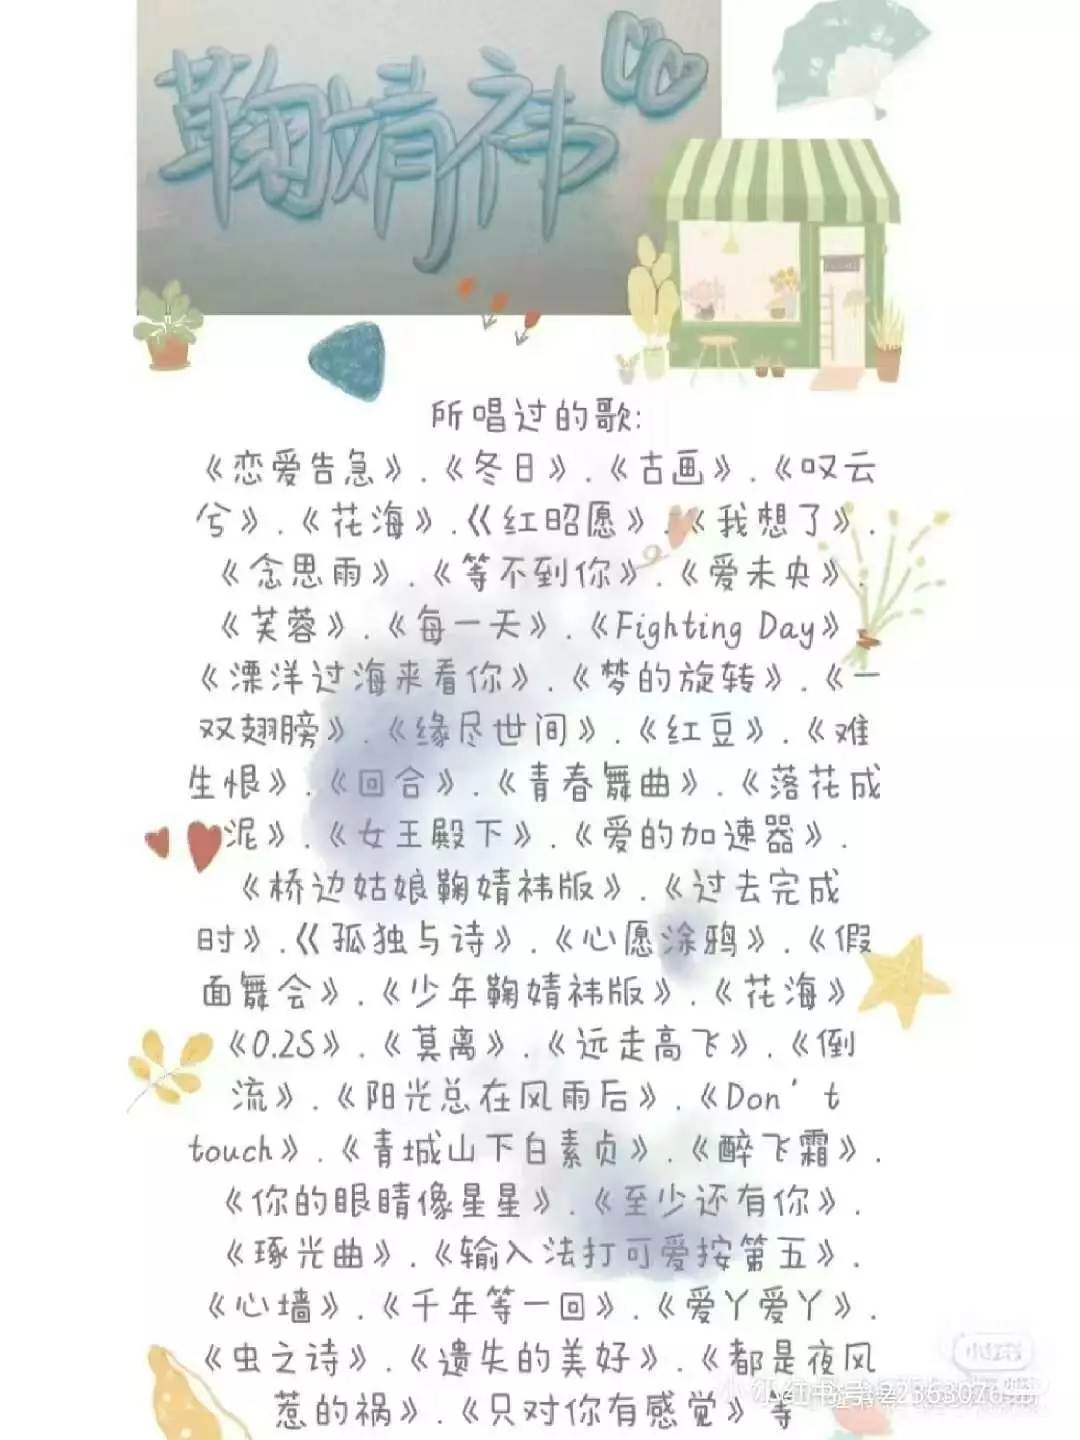 鞠婧祎
所唱过的歌:
《恋爱告急》.《冬日》.《古画》.《叹云
兮》.《花海》.《红昭愿》.《我想了》.
《念思雨》.《等不到你》.《爱未央》.
《芙蓉》.《每一天》.《Fighting Day》
《漂洋过海来看你》.《梦的旋转》.《一
双翅膀》.《缘尽世间》.《红豆》.《难
生恨》.《回合》.《青春舞曲》.《落花成
泥》.《女王殿下》.《爱的加速器》.
《桥边姑娘鞠婧祎版》.《过去完成
时》.《孤独与诗》.《心愿涂鸦》.《假
面舞会》.《少年鞠婧祎版》.《花海》
《0.2S》.《莫离》.《远走高飞》.《倒
流》.《阳光总在风雨后》.《Don't
touch》.《青城山下白素贞》.《醉飞霜》.
《你的眼睛像星星》.《至少还有你》.
《琢光曲》.《输入法打可爱按第五》.
《心墙》.《千年等一回》.《爱丫爱丫》.
《虫之诗》.《遗失的美好》.《都是夜风
惹的祸》.《只对你有感觉》等